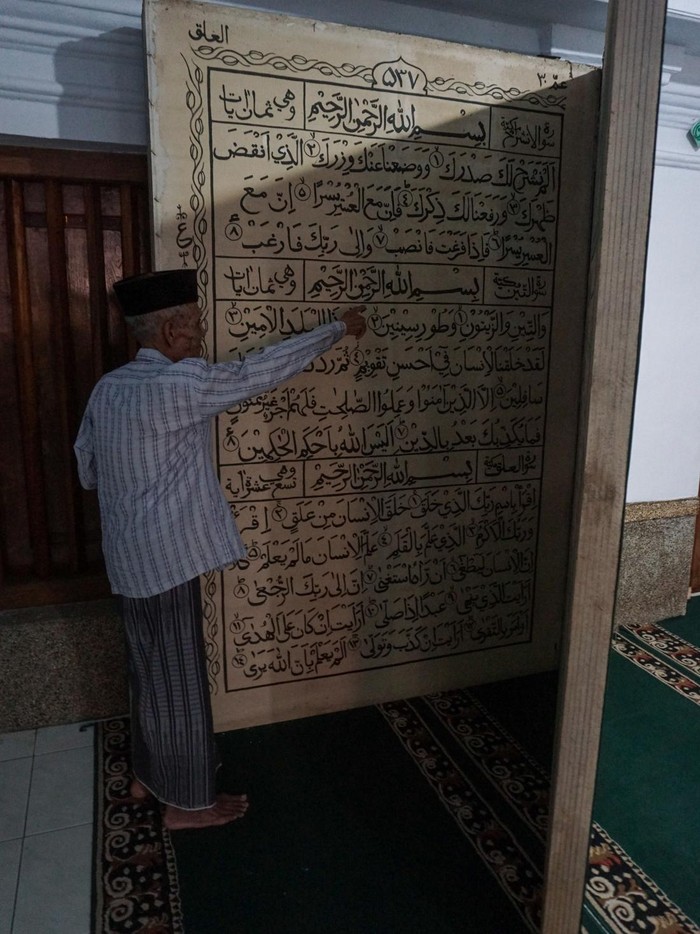 عَمَّ ٣٠
٥٣٧
العلق
سورة الانشراح مكية بِسْمِ اللهِ الرَّحْمٰنِ الرَّحِيْمِ وهي ثمان ايات
اَلَمْ نَشْرَحْ لَكَ صَدْرَكَ ١ وَوَضَعْنَا عَنْكَ وِزْرَكَ ٢ الَّذِيْ اَنْقَضَ
ظَهْرَكَ ٣ وَرَفَعْنَا لَكَ ذِكْرَكَ ٤ فَاِنَّ مَعَ الْعُسْرِ يُسْرًا ٥ اِنَّ مَعَ
الْعُسْرِ يُسْرًا ٦ فَاِذَا فَرَغْتَ فَانْصَبْ ٧ وَاِلٰى رَبِّكَ فَارْغَبْ ٨
سورة التين مكية بِسْمِ اللهِ الرَّحْمٰنِ الرَّحِيْمِ وهي ثمان ايات
وَالتِّيْنِ وَالزَّيْتُوْنِ ١ وَطُوْرِ سِيْنِيْنَ ٢ الْبَلَدِ الْاَمِيْنِ ٣
لَقَدْ خَلَقْنَا الْاِنْسَانَ فِيْ اَحْسَنِ تَقْوِيْمٍ ٤ ثُمَّ
سَافِلِيْنَ ٥ اِلَّا الَّذِيْنَ اٰمَنُوْا وَعَمِلُوا الصّٰلِحٰتِ فَلَهُمْ اَجْرٌ غَيْرُ مَمْنُوْنٍ
فَمَا يُكَذِّبُكَ بَعْدُ بِالدِّيْنِ ٧ اَلَيْسَ اللهُ بِاَحْكَمِ الْحٰكِمِيْنَ ٨
سورة العلق مكية بِسْمِ اللهِ الرَّحْمٰنِ الرَّحِيْمِ وهي تسع عشرة اية
اِقْرَأْ بِاسْمِ رَبِّكَ الَّذِيْ خَلَقَ ١ خَلَقَ الْاِنْسَانَ مِنْ عَلَقٍ ٢
وَرَبُّكَ الْاَكْرَمُ ٣ الَّذِيْ عَلَّمَ بِالْقَلَمِ ٤ عَلَّمَ الْاِنْسَانَ مَا لَمْ يَعْلَمْ ٥
اِنَّ الْاِنْسَانَ لَيَطْغٰى ٦ اَنْ رَاٰهُ اسْتَغْنٰى ٧ اِنَّ اِلٰى رَبِّكَ الرُّجْعٰى ٨
اَرَاَيْتَ الَّذِيْ يَنْهٰى ٩ عَبْدًا اِذَا صَلّٰى ١٠ اَرَاَيْتَ اِنْ كَانَ عَلَى الْهُدٰى ١١
اَوْ اَمَرَ بِالتَّقْوٰى ١٢ اَرَاَيْتَ اِنْ كَذَّبَ وَتَوَلّٰى ١٣ اَلَمْ يَعْلَمْ بِاَنَّ اللهَ يَرٰى ١٤